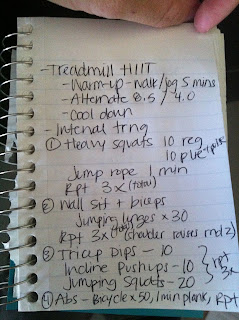 - Treadmill HIIT
- Warm-up - walk/jog 5 mins
- Alternate 8.5 / 4.0
- Cool down
- Interval trng
① Heavy squats 10 reg
10 plie
Jump rope 1 min
Rpt 3x (total)
② Wall sit + biceps
Jumping lunges x 30
Rpt 3x (total) (shoulder raises rnd 2)
③ Tricep Dips - 10
Incline Pushups - 10 } rpt 3x
Jumping Squats - 20
④ Abs - Bicycle x 50, 1 min plank, Rpt